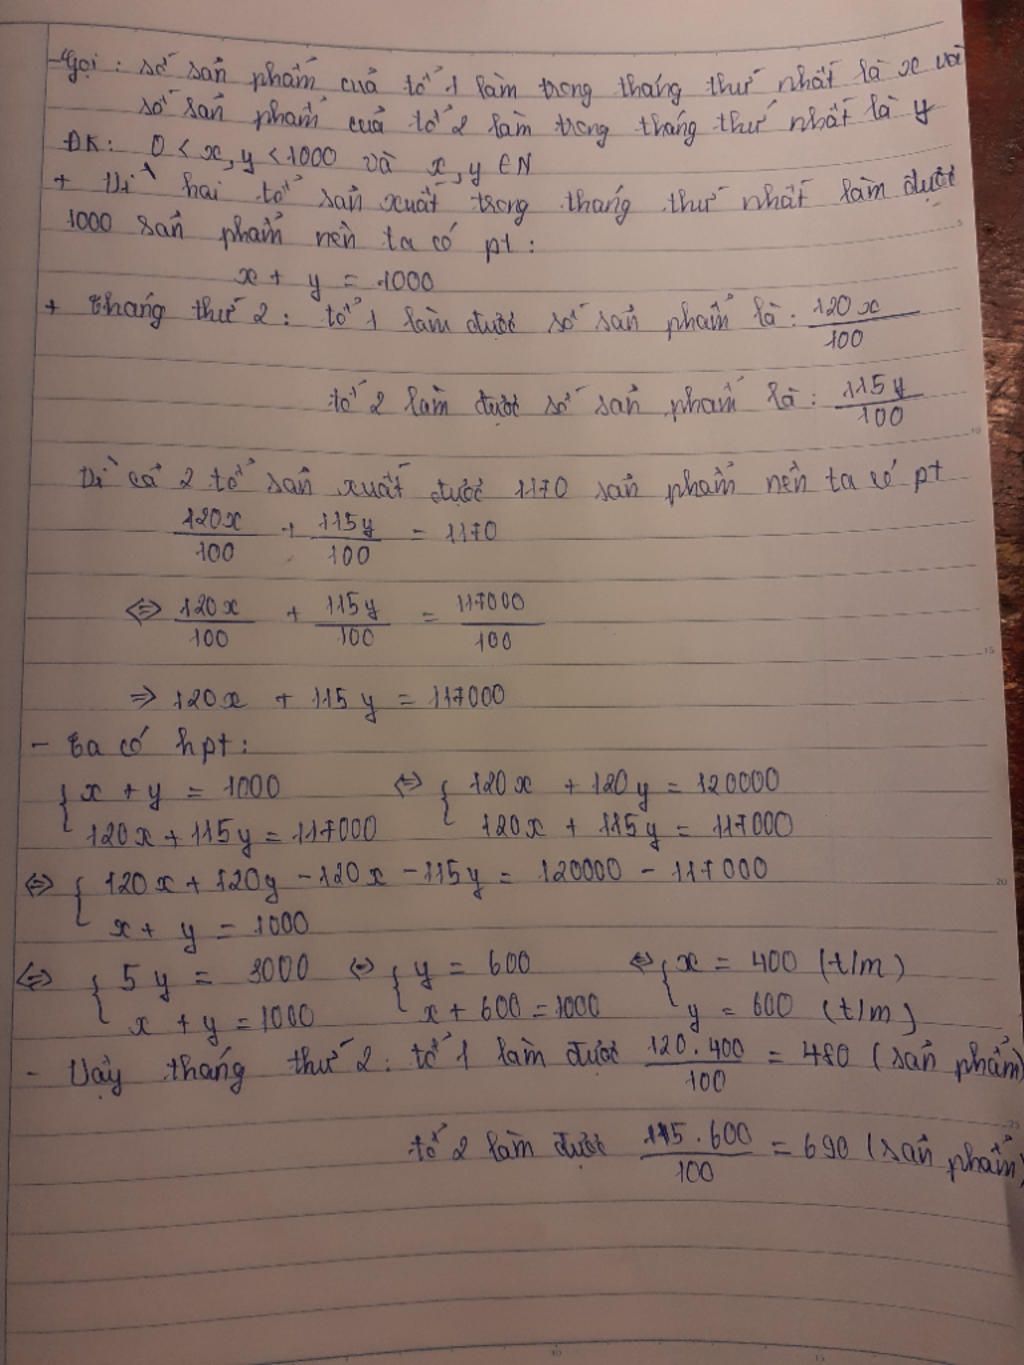 - Gọi : số sản phẩm của tổ 1 làm trong tháng thứ nhất là x và
số sản phẩm của tổ 2 làm trong tháng thứ nhất là y
ĐK: 0 < x, y < 1000 và x, y ∈ N
+ Vì hai tổ sản xuất trong tháng thứ nhất làm được
1000 sản phẩm nên ta có pt :
x + y = 1000
+ tháng thứ 2 : tổ 1 làm được số sản phẩm là : 120x/100
tổ 2 làm được số sản phẩm là : 115y/100
Vì cả 2 tổ sản xuất được 1170 sản phẩm nên ta có pt
120x/100 + 115y/100 = 1170
⇔ 120x/100 + 115y/100 = 117000/100
⇒ 120x + 115y = 117000
- Ta có hpt :
{ x + y = 1000 ⇔ { 120x + 120y = 120000
120x + 115y = 117000 120x + 115y = 117000
⇔ { 120x + 120y - 120x - 115y = 120000 - 117000
x + y = 1000
⇔ { 5y = 3000 ⇔ { y = 600 ⇔ { x = 400 (t/m)
x + y = 1000 x + 600 = 1000 y = 600 (t/m)
- Vậy tháng thứ 2 : tổ 1 làm được 120.400/100 = 480 (sản phẩm)
tổ 2 làm được 115.600/100 = 690 (sản phẩm)